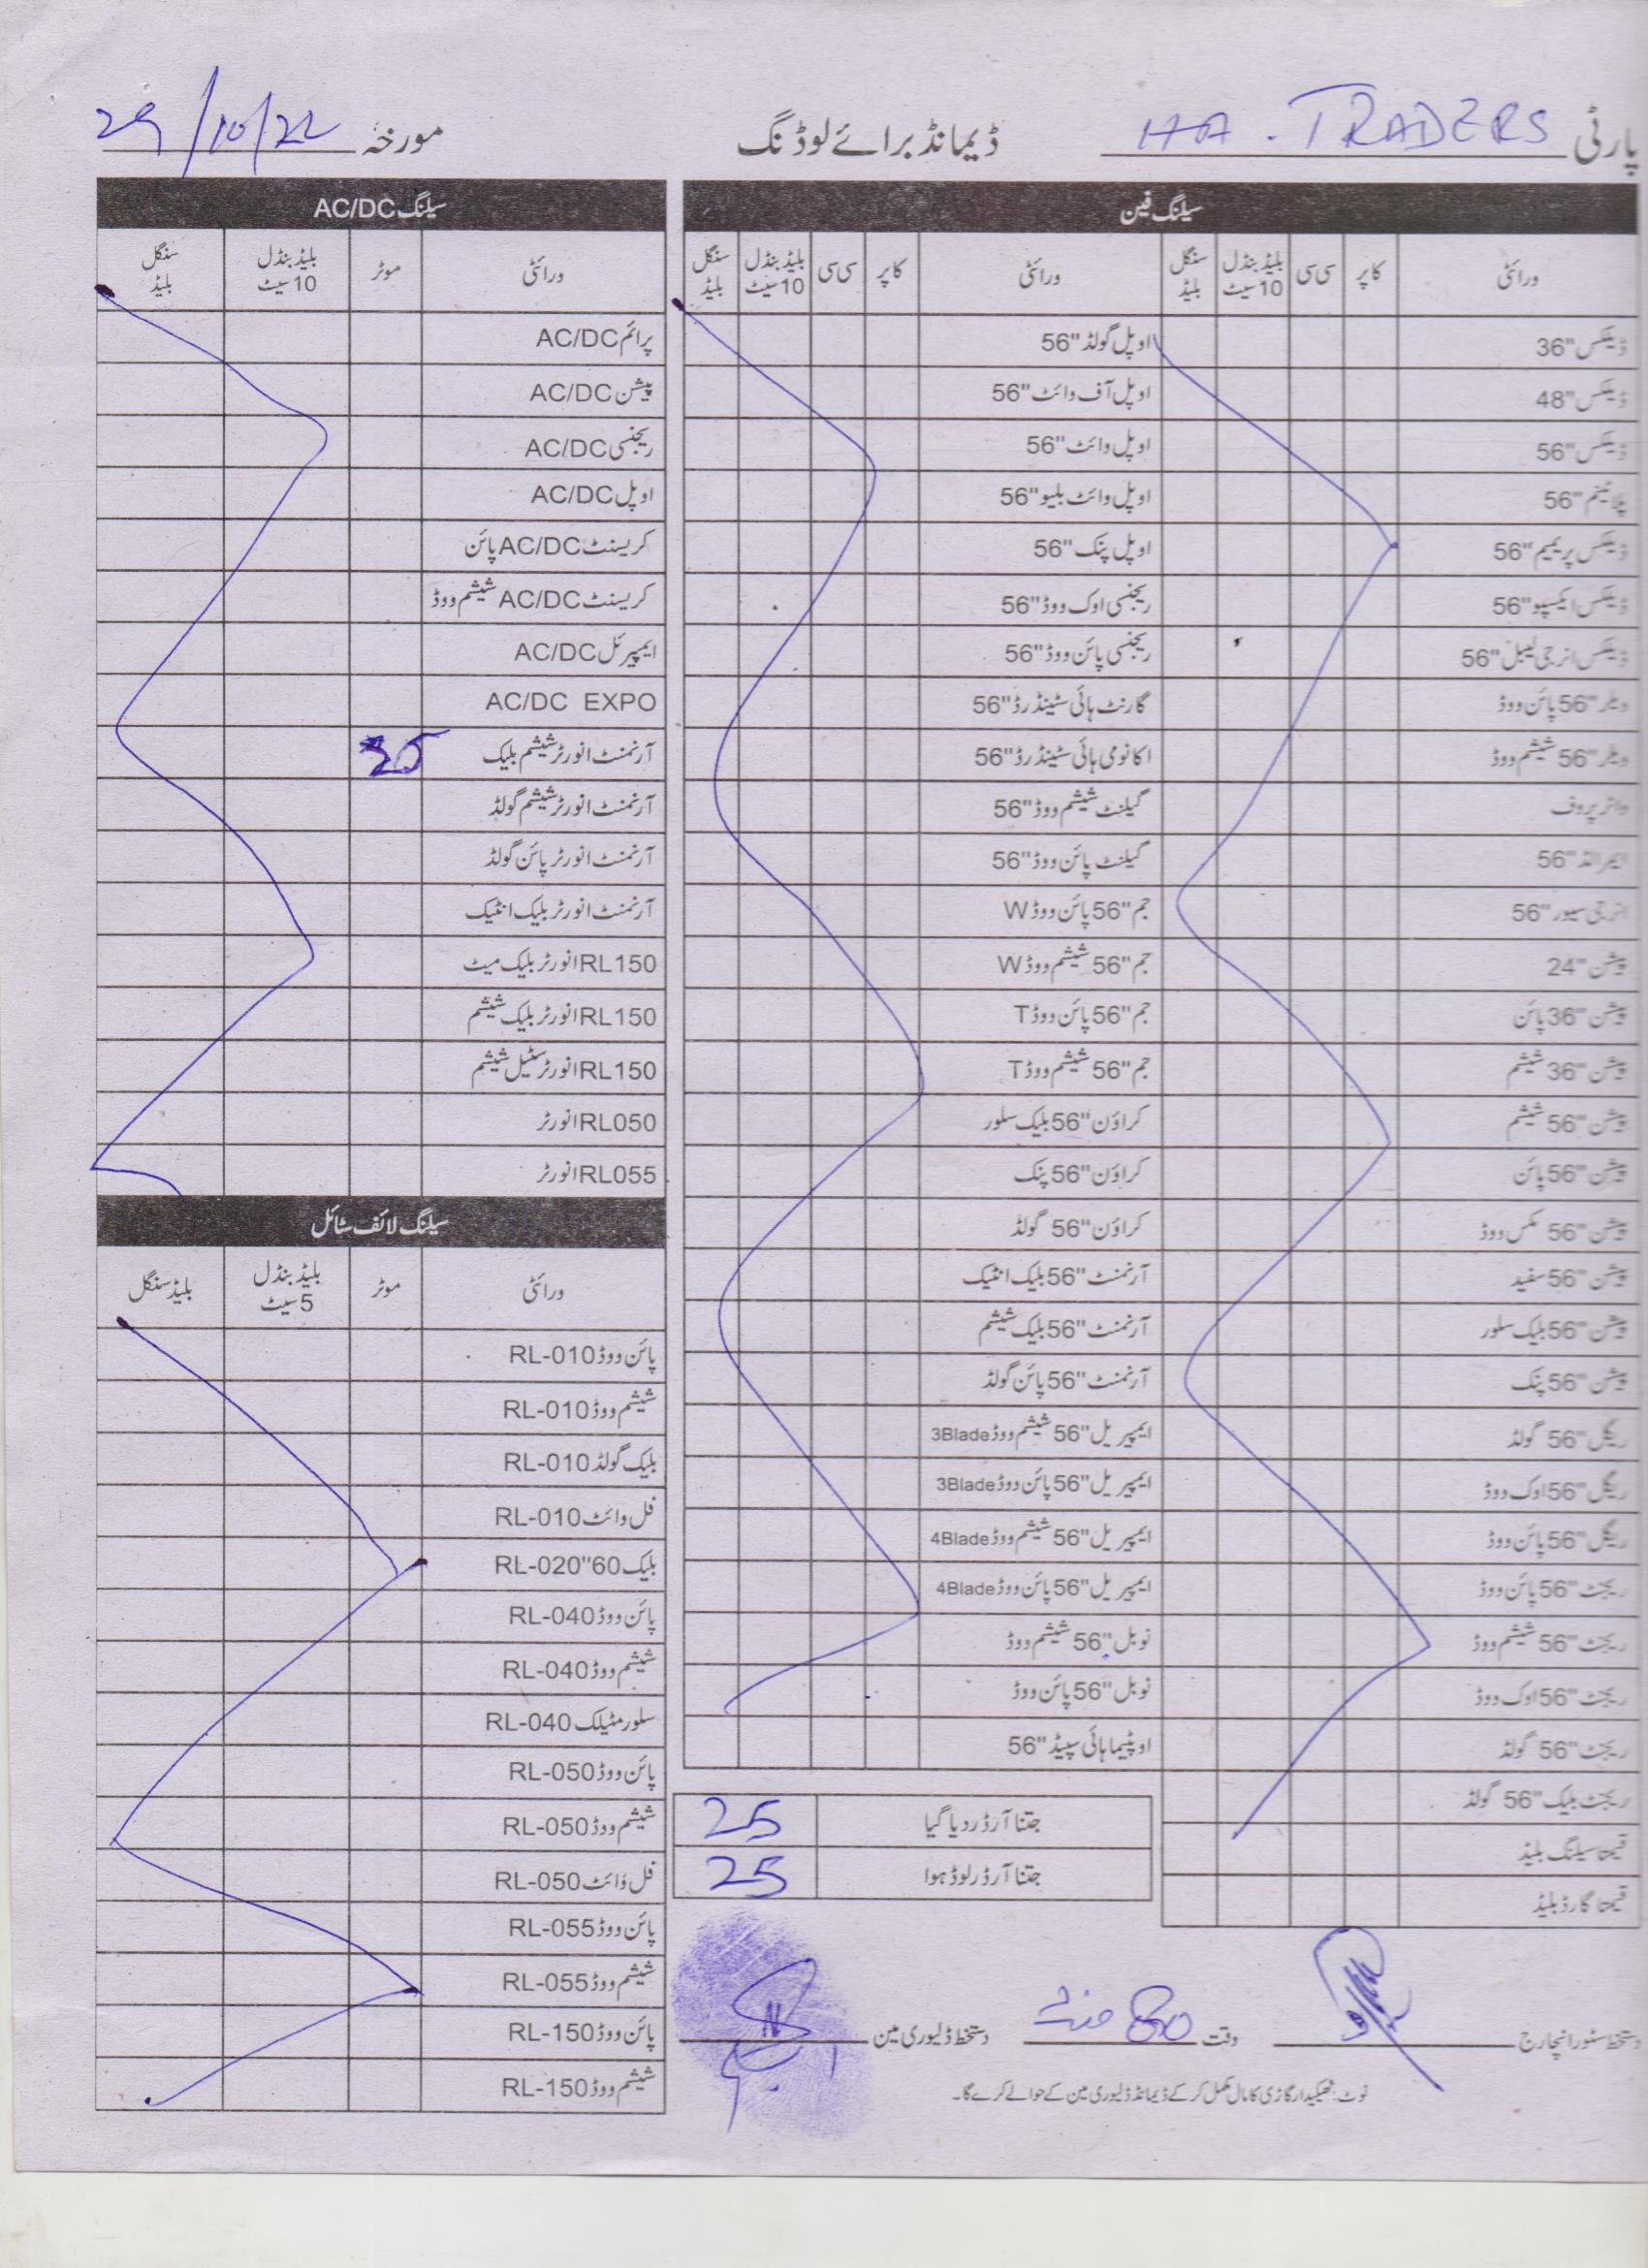 پارٹی HA. TRADERS
ڈیمانڈ برائے لوڈنگ
مورخہ 29/10/22
سیلنگ فین
ورائٹی کاپر سی سی بلیڈ بنڈل 10 سیٹ سنگل بلیڈ
ڈیلکس "36
ڈیلکس "48
ڈیلکس "56
پلاٹینم "56
ڈیلکس پریمیم "56
ڈیلکس ایکسپو "56
ڈیلکس انرجی لیبل "56
ویلر "56 پائن ووڈ
ویلر "56 شیشم ووڈ
واٹر پروف
ایمرالڈ "56
انرجی سیور "56
پیشن "24
پیشن "36 پائن
پیشن "36 شیشم
پیشن "56 شیشم
پیشن "56 پائن
پیشن "56 مکس ووڈ
پیشن "56 سفید
پیشن "56 بلیک سلور
پیشن "56 پنک
ریگل "56 گولڈ
ریگل "56 اوک ووڈ
ریگل "56 پائن ووڈ
ریجنٹ "56 پائن ووڈ
ریجنٹ "56 شیشم ووڈ
ریجنٹ "56 اوک ووڈ
ریجنٹ "56 گولڈ
ریجنٹ بلیک "56 گولڈ
قیمتا سیلنگ بلیڈ
قیمتا گارڈ بلیڈ
ورائٹی کاپر سی سی بلیڈ بنڈل 10 سیٹ سنگل بلیڈ
اوپل گولڈ "56
اوپل آف وائٹ "56
اوپل وائٹ "56
اوپل وائٹ بلیو "56
اوپل پنک "56
ریجنسی اوک ووڈ "56
ریجنسی پائن ووڈ "56
گارنٹ ہائی سٹینڈرڈ "56
اکانومی ہائی سٹینڈرڈ "56
گیلنٹ شیشم ووڈ "56
گیلنٹ پائن ووڈ "56
جم "56 پائن ووڈ W
جم "56 شیشم ووڈ W
جم "56 پائن ووڈ T
جم "56 شیشم ووڈ T
کراؤن "56 بلیک سلور
کراؤن "56 پنک
کراؤن "56 گولڈ
آرنمنٹ "56 بلیک انٹیک
آرنمنٹ "56 بلیک شیشم
آرنمنٹ "56 پائن گولڈ
ایمپیریل "56 شیشم ووڈ 3Blade
ایمپیریل "56 پائن ووڈ 3Blade
ایمپیریل "56 شیشم ووڈ 4Blade
ایمپیریل "56 پائن ووڈ 4Blade
نوبل "56 شیشم ووڈ
نوبل "56 پائن ووڈ
اوپٹیما ہائی سپیڈ "56
جتنا آرڈر دیا گیا 25
جتنا آرڈر لوڈ ہوا 25
سیلنگ AC/DC
ورائٹی موٹر بلیڈ بنڈل 10 سیٹ سنگل بلیڈ
پرائم AC/DC
پیشن AC/DC
ریجنسی AC/DC
اوپل AC/DC
کریسنٹ AC/DC پائن
کریسنٹ AC/DC شیشم ووڈ
ایمپیرئل AC/DC
AC/DC EXPO
آرنمنٹ انورٹر شیشم بلیک 25
آرنمنٹ انورٹر شیشم گولڈ
آرنمنٹ انورٹر پائن گولڈ
آرنمنٹ انورٹر بلیک انٹیک
RL150 انورٹر بلیک میٹ
RL150 انورٹر بلیک شیشم
RL150 انورٹر سٹیل شیشم
RL050 انورٹر
RL055 انورٹر
سیلنگ لائف سٹائل
ورائٹی موٹر بلیڈ بنڈل 5 سیٹ بلیڈ سنگل
پائن ووڈ RL-010
شیشم ووڈ RL-010
بلیک گولڈ RL-010
فل وائٹ RL-010
بلیک 60"RL-020
پائن ووڈ RL-040
شیشم ووڈ RL-040
سلور مٹیلک RL-040
پائن ووڈ RL-050
شیشم ووڈ RL-050
فل وائٹ RL-050
پائن ووڈ RL-055
شیشم ووڈ RL-055
پائن ووڈ RL-150
شیشم ووڈ RL-150
دستخط سٹور انچارج
وقت 80 منٹ
دستخط ڈلیوری مین
نوٹ: ٹھیکیدار گاڑی کا مال مکمل کر کے ڈیمانڈ ڈلیوری مین کے حوالے کرے گا۔